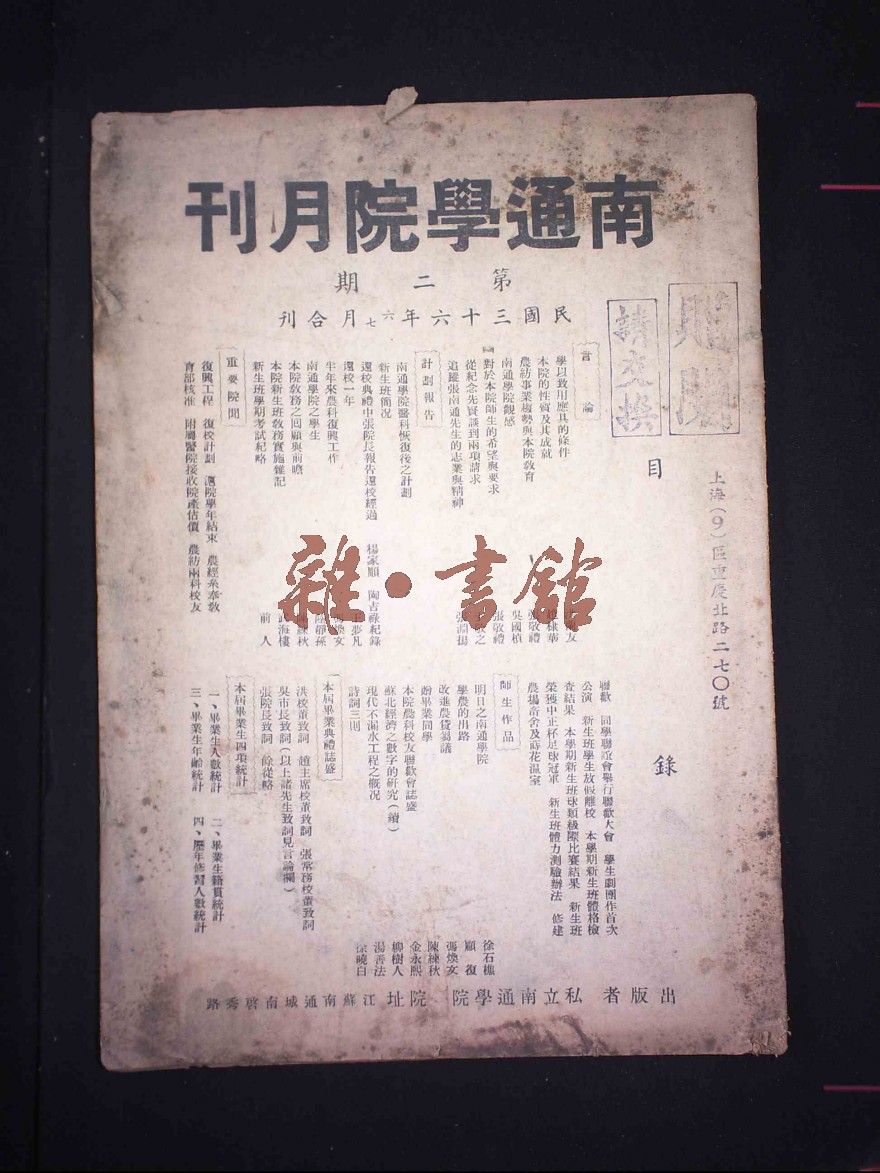 南通學院月刊
第二期
民國三十六年六七月合刊
贈閱
請交換
上海(9)區重慶北路二七〇號
目錄
言論
學以致用應具的條件
本院的性質及其成就
農紡事業趨勢與本院教育
南通學院觀感
對於本院師生的希望與要求
從紀念先賢談到兩項請求
追蹤張南通先生的志業與精神
張敬禮
吳國楨
張敬禮
張淵揚
計劃報告
南通學院醫科恢復後之計劃
新生班簡況
還校典禮中張院長報告還校經過
還校一年
半年來農科復興工作
南通學院之學生
本院教務之回顧與前瞻
本院新生班教務實施雜記
新生班學期考試紀略
楊家順 陶吉祿紀錄
王夢凡
馮煥文
陸靜孫
陳練秋
武海樓
前人
重要院聞
復興工程 復校計劃 滬院學年結束 農經系奉教
育部核准 附屬醫院接收院產估價 農紡兩科校友
聯歡 同學聯誼會舉行聯歡大會 學生劇團作首次
公演 新生班學生放假離校 本學期新生班體格檢
查結果 本學期新生班球類級際比賽結果 新生班
榮獲中正杯足球冠軍 新生班體力測驗辦法 修建
農場畜舍及蒔花温室
師生作品
明日之南通學院
學農的出路
改進農貸芻議
贈畢業同學
本院農科校友聯歡會誌盛
蘇北經濟之數字的研究(續)
現代不漏水工程之概況
詩詞三則
徐石樵
顧復
馮煥文
陳練秋
金永熙
柳樹人
湯善法
徐曉白
本屆畢業典禮誌盛
洪校董致詞 趙主席校董致詞 張常務校董致詞
吳市長致詞(以上諸先生致詞見言論欄)
張院長致詞 餘從略
本屆畢業生四項統計
一、畢業生人數統計 二、畢業生籍貫統計
三、畢業生年齡統計 四、歷年修習人數統計
出版者 私立南通學院 院址 江蘇南通城南啓秀路
雜·書館